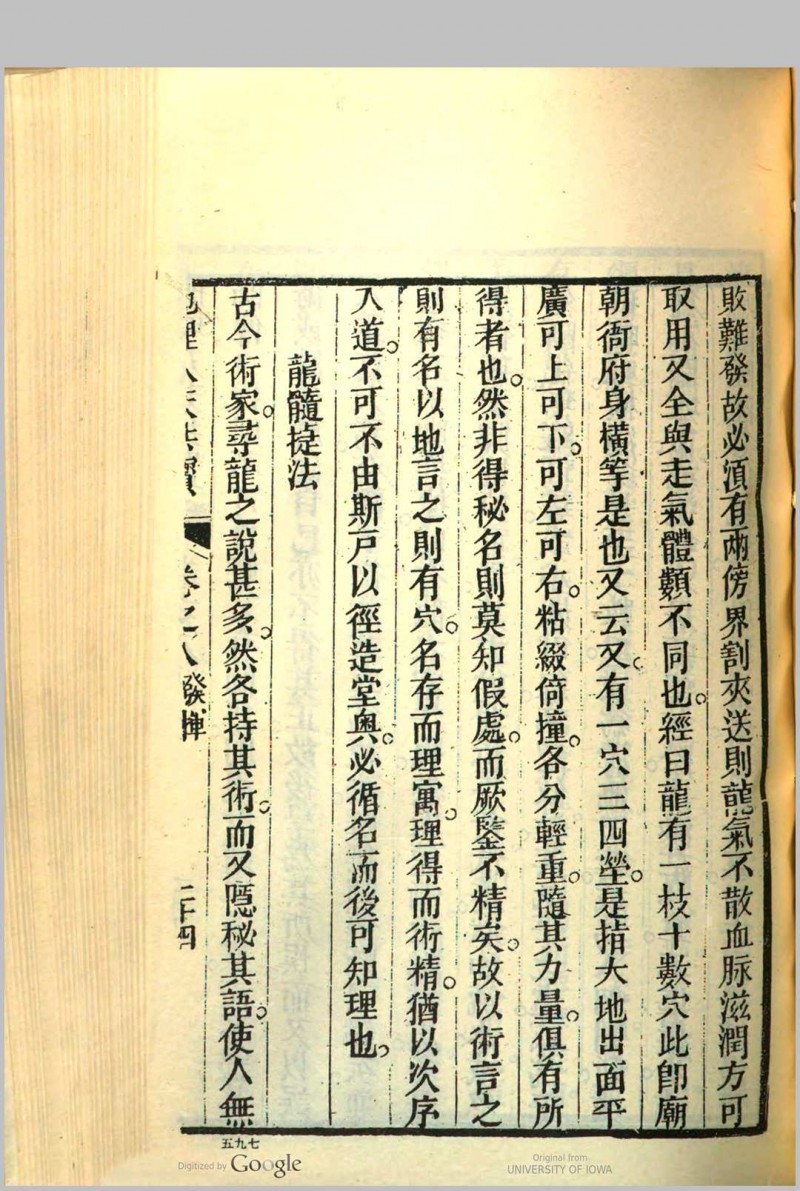 敗難發故必湏有兩傍界割夾送則龍氣不散血脉滋潤方可
取用又全與走氣體類不同也。經曰龍有一枝十數穴此卽廟
朝衙府身橫等是也又云又有一穴三四塋。是指大地出面平
廣可上可下。可左可右。粘綴倚撞。各分輕重。隨其力量。俱有所
得者也。然非得秘名則莫知假處。而厥鑒不精矣。故以術言之
則有名以地言之則有穴。名存而理寓。理得而術精。猶以次序
入道。不可不由斯戶以徑造堂奧。必循名而後可知理也。
龍髓㨗法
古今術家。尋龍之說甚多。然各持其術。而又隱秘其語。使人無
卷之八 發揮
二十四
五九七
Digitized by Google
Original from
UNIVERSITY OF IOWA